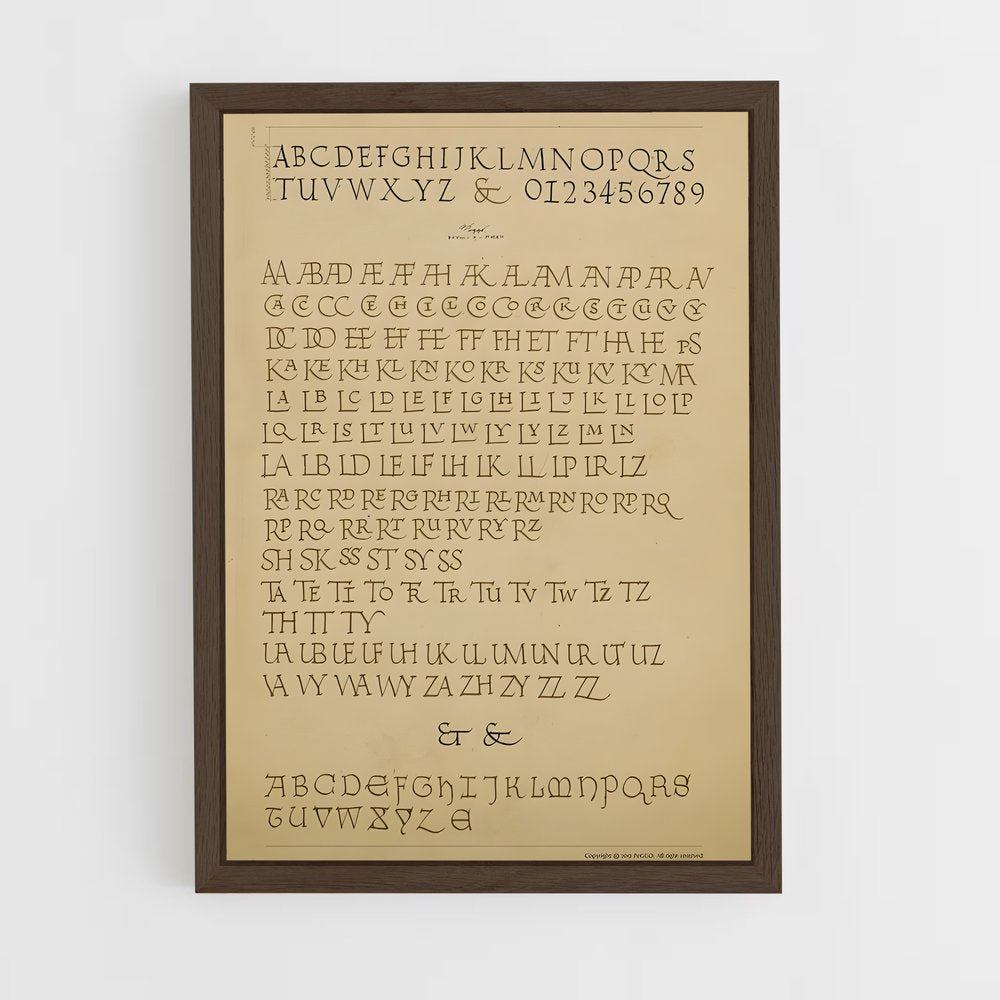 ABCDEFGHIJKLMNOPQRS
TUVWXYZ & 0123456789
AA AB AD AE AF AH AK AL AM AN AP AR AV
CA CC CC CE CH CI CL CO CO CR CK CS CT CU CV CY
DC DO EE EF FE FF FH ET FT HA HE PS
KA KE KH KL KN KO KR KS KU KV KY MA
LA LB LC LD LE LF LG LH LI LJ LK LL LO LP
LQ LR LS LT LU LV LW LY LY LZ LM LN
LA LB LD LE LF LH LK LL LP LR LZ
RA RC RD RE RG RH RI RL RM RN RO RP RQ
RP RQ RR RT RU RV RY RZ
SH SK SS ST SY SS
TA TE TI TO TR TR TU TV TW TZ TZ
TH TT TY
UA UB UE UF UH UK UL UM UN UR UT UZ
VA VY WA WY ZA ZH ZY ZZ ZZ
& &
ABCDEFGHIJKLMNPQRS
TUVWXYZE
Copyright ©